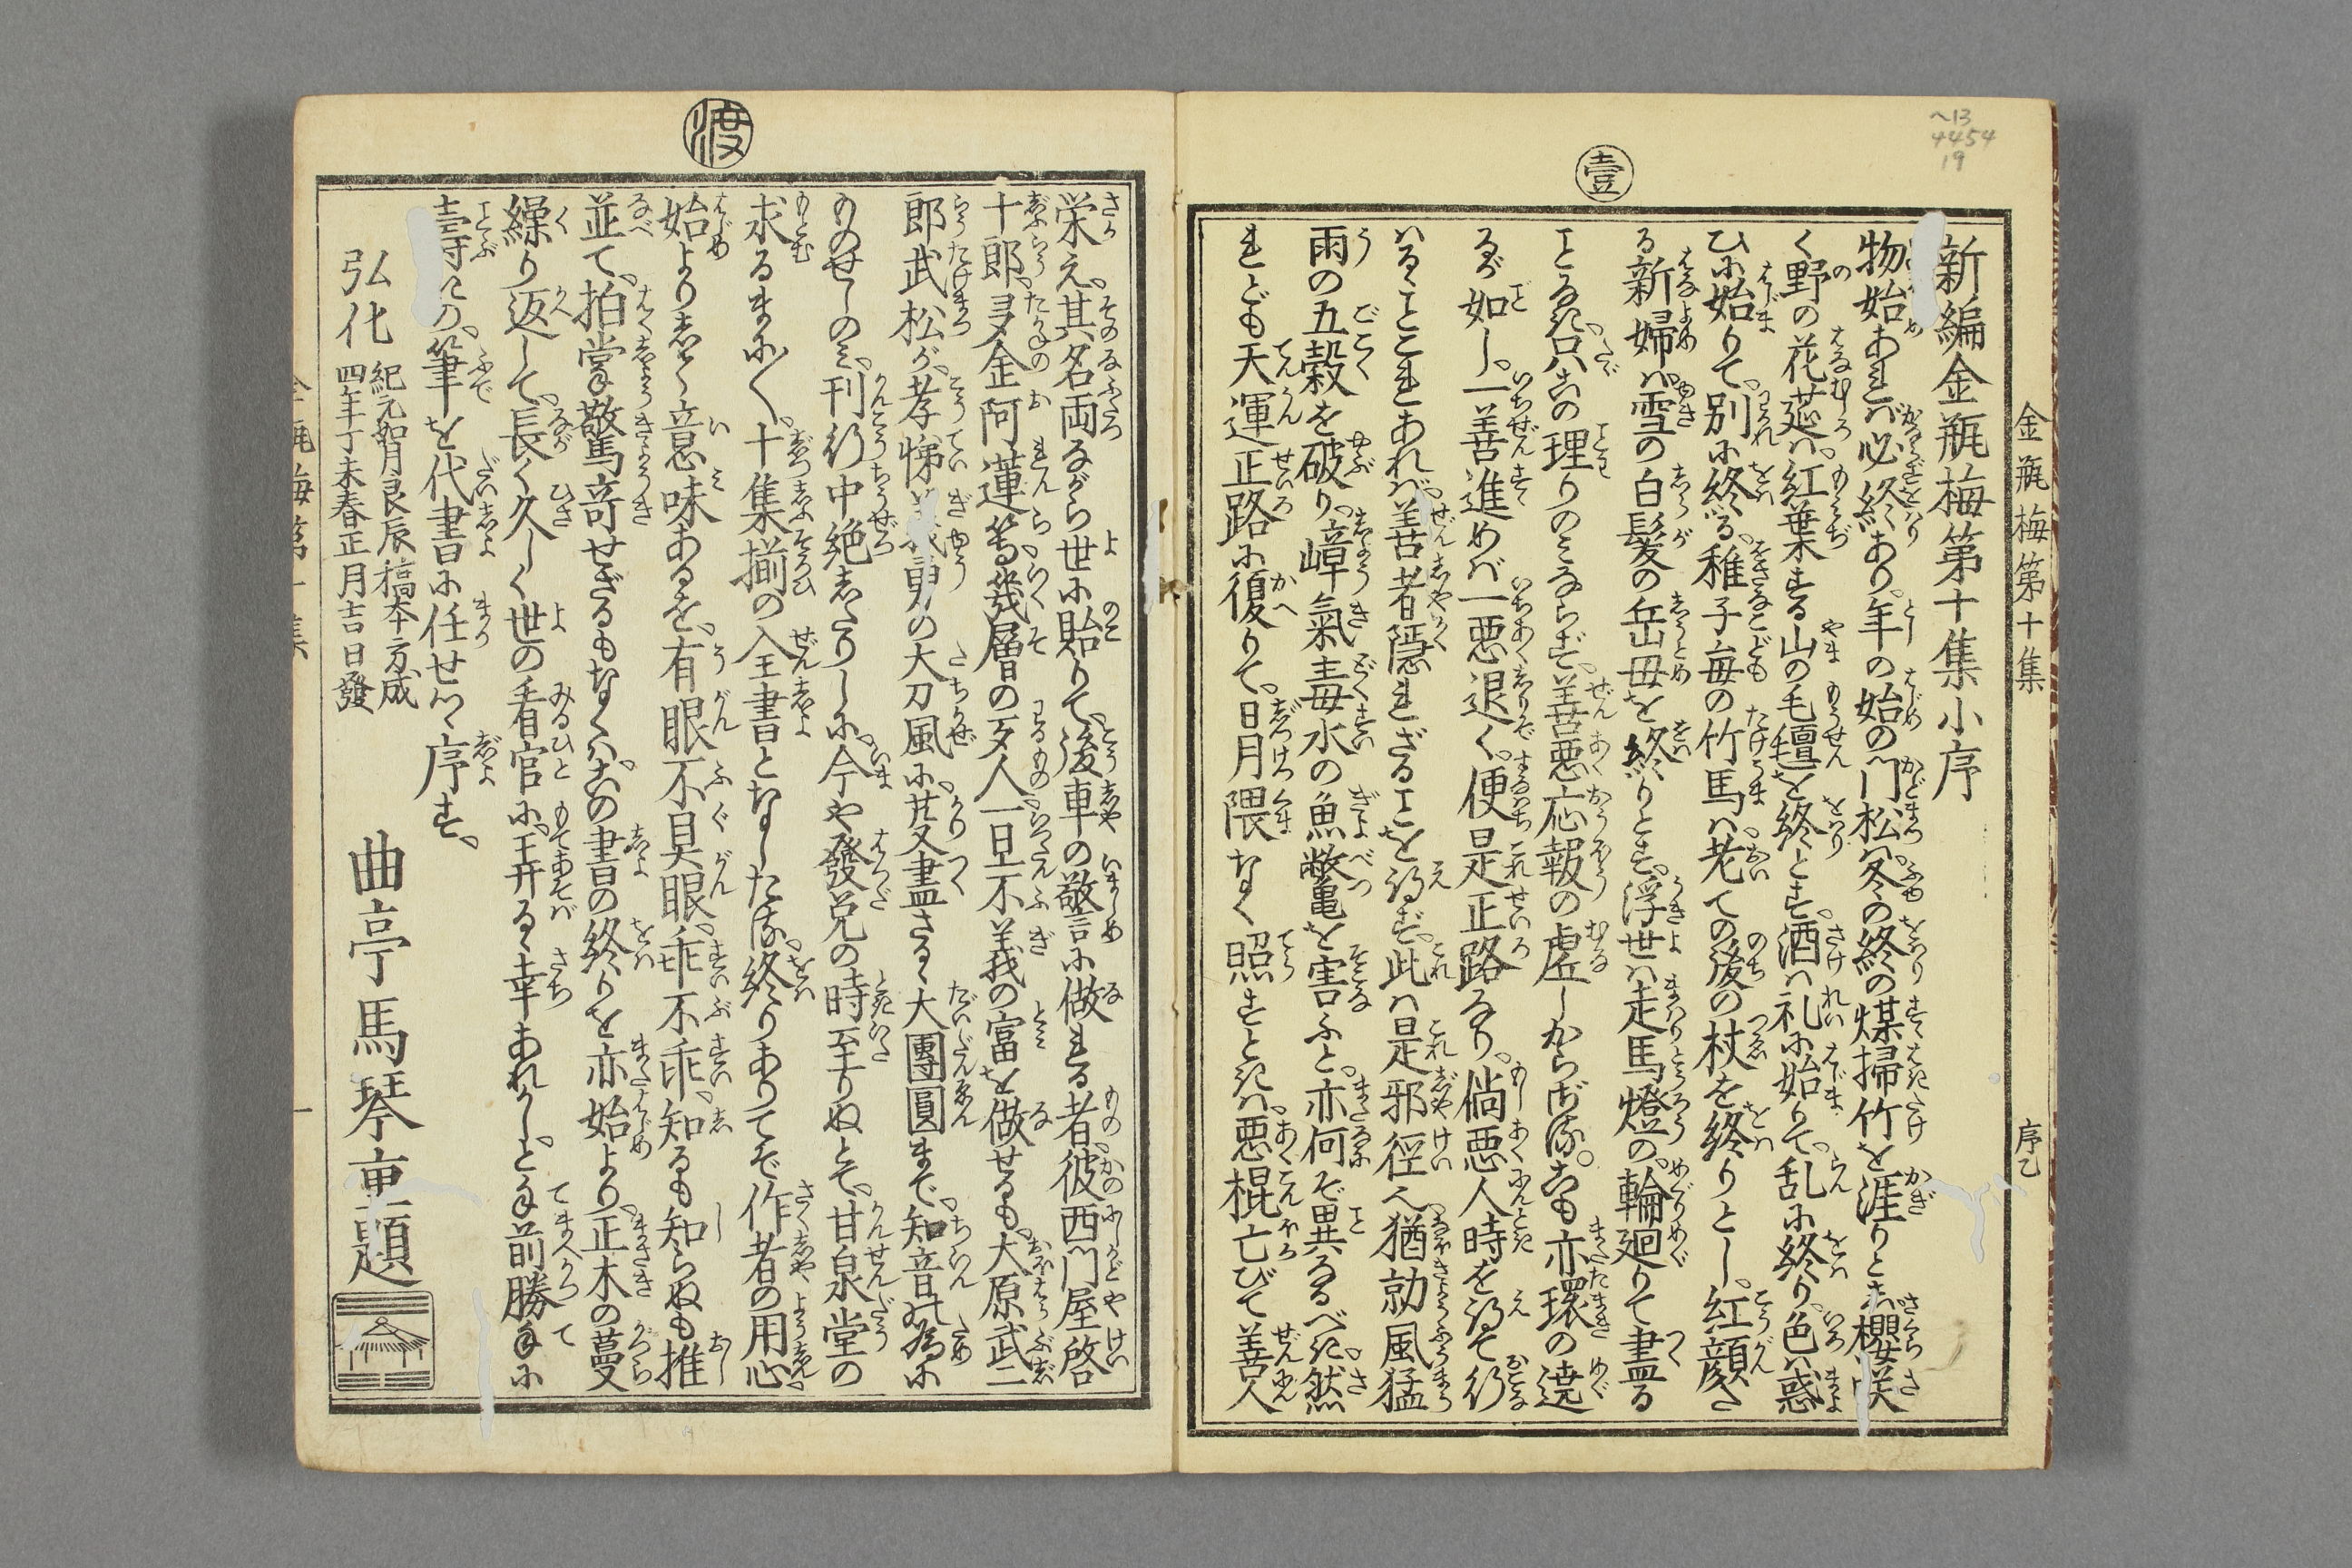 金瓶梅第十集
序乙
壹
新編金瓶梅第十集小序
物始あれば必終あり。年の始の門松は。冬の終の煤掃竹を涯りとす。櫻咲
く野の花莚は。紅葉する山の毛氈を終とす。酒は礼に始りて。乱に終り。色は惑
ひに始りて。別に終る。稚子毎の竹馬は。老ての後の杖を終りとし。紅顔た
る新婦は。雪の白髪の岳母を終りとす。浮世は走馬燈の。輪廻りて盡る
ことなき。只この理りのみならず。善悪応報の虚しからざる。○これも亦環の遶
るが如し。一善進めば一悪退く。便是正路なり。倘悪人時を得て行
はるゝことこれあれば。善者隠れざることを得ず。此は是邪徑へ。猶勍風猛
雨の五穀を破り。嶂氣毒水の魚鼈を害ふと。亦何ぞ異るべき。然
れども天運正路に復りて。日月隈なく照すときは。悪棍亡びて善人
渡
栄え。其名両ながら世に貽りて。後車の警に做れる者。彼西門屋啓
十郎。多金阿蓮等。幾層の歹人一旦不義の富を做せるも。大原武二
郎武松が。孝悌義勇の大刀風に。芟盡さるゝ大團圓まで。知音の為に
ものせしのみ。刊行中絶したりしに。今や發兌の時至りぬとて。甘泉堂の
求るまに〱。十集揃の全書となしたる。終りありてぞ作者の用心。
始よりしるく意味あるを。有眼不具眼。乖不乖。知るも知らぬも推
並て。拍掌驚竒せざるもなくは。この書の終りを亦始より。正木の蔓
繰り返して。長く久しく世の看官に。弄る幸あれかし。とて前勝手に
壽の。筆を代書に任せつゝ序す。
弘化
紀元智月良辰稿本方成
四年丁未春正月吉日發
曲亭馬琴重題
金瓶梅第十集
一